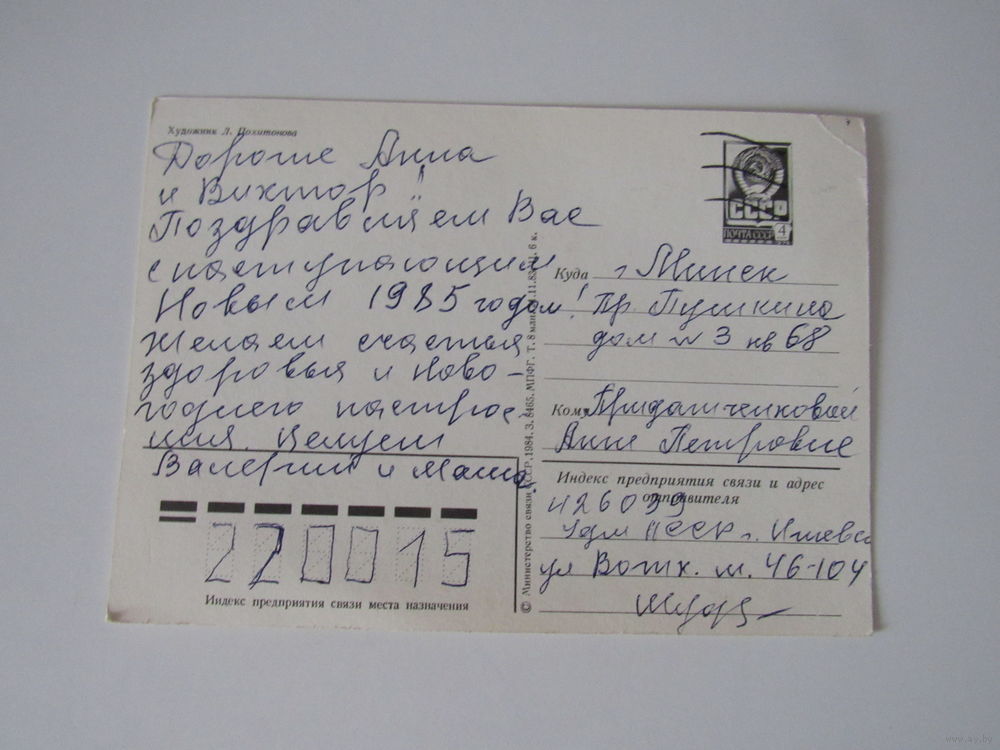 Художник Л. Похитонова
Дорогие Анна
и Виктор!
Поздравляем Вас
с наступающим
Новым 1985 годом!
Желаем счастья
здоровья и ново-
годнего настрое
ния. Целуем
Валерий и Маша.
220015
Индекс предприятия связи места назначения
© Министерство связи СССР, 1984. З. 8465. МПФГ. Т. 8 млн. 6 к.
ПОЧТА СССР 4
Куда г Минск
Пр. Пушкина
дом № 3 кв 68
Кому
Анне Петровне
Индекс предприятия связи и адрес
отправителя
426039
Удм АССР г. Ижевск
ул Вотк. ш. 46-104
www.ay.by